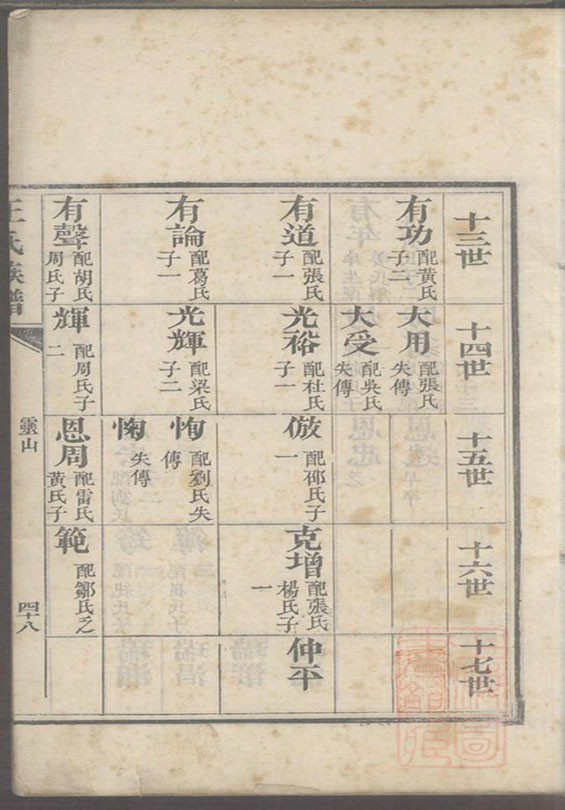 十三世
有功 配黃氏
子二
有道 配張氏
子一
有論 配葛氏
子一
有聲 配胡氏
周氏子
十四世
大用 配張氏
失傳
大受 配吳氏
失傳
光裕 配杜氏
子一
光輝 配梁氏
子二
輝 配周氏子
二
十五世
倣 配邵氏子
一
恂 配劉氏失
傳
恟 失傳
恩周 配雷氏
黃氏子
十六世
克增 配張氏
楊氏子
一
範 配鄒氏乏
十七世
仲平
王氏族譜
靈山
四十八